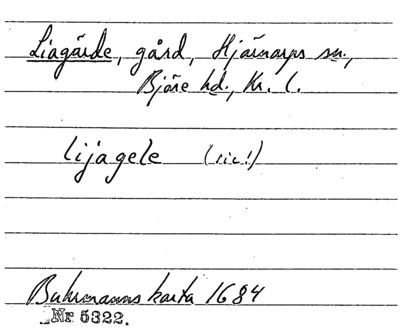 Liagärde, gård, Hjärnarps sn.,
Bjäre hd., Kr. l.
lijagele (sic!)
Buhrmanns karta 1684
Nr 5322.